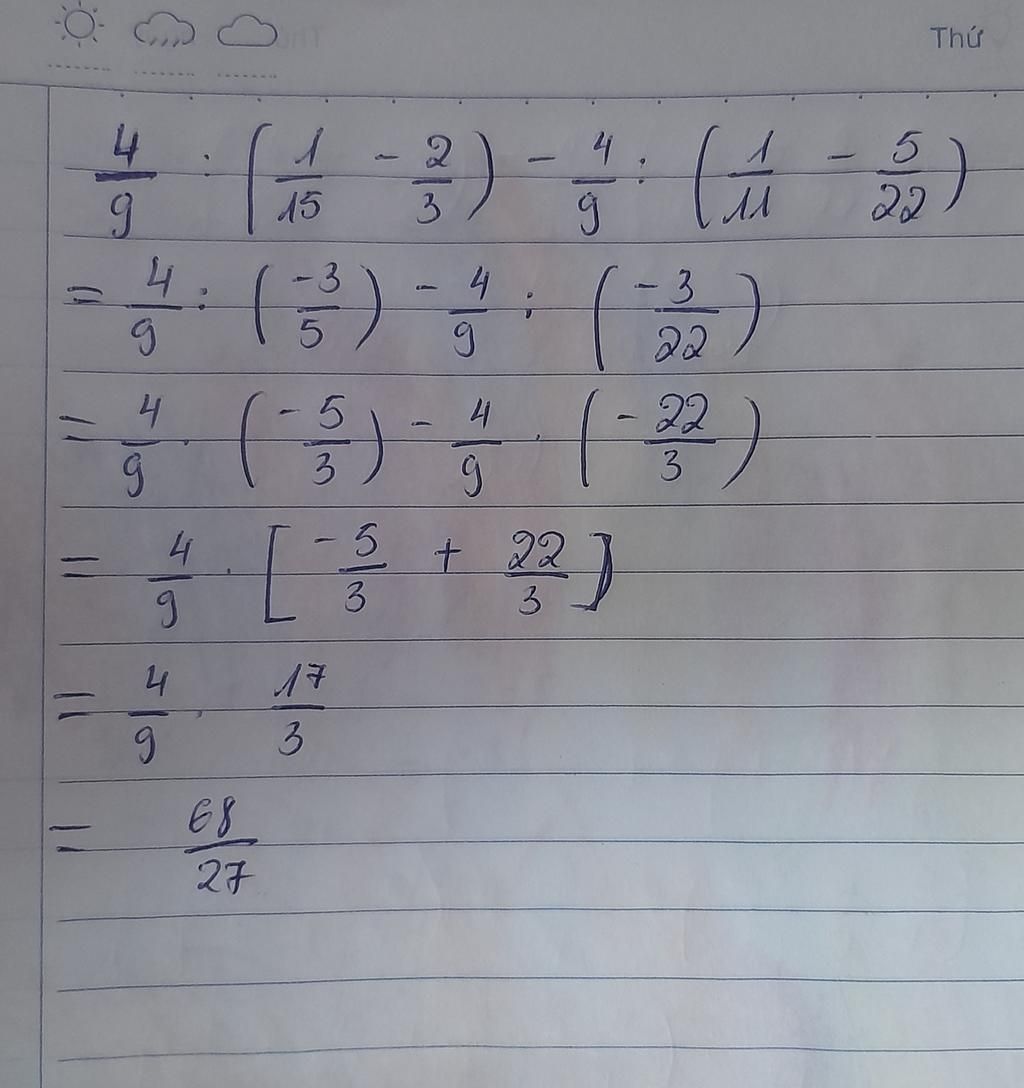 Thứ
4/9 : (1/15 - 2/3) - 4/9 : (1/11 - 5/22)
= 4/9 : (-3/5) - 4/9 : (-3/22)
= 4/9 . (-5/3) - 4/9 . (-22/3)
= 4/9 . [-5/3 + 22/3]
= 4/9 . 17/3
= 68/27